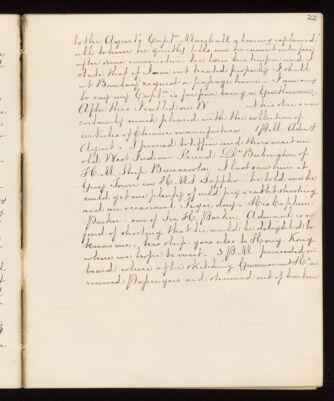 22
to the Agent, Capt. Marshall & having explained
all to him he quietly tells me he cannot interfere
after some conversation
state that if I am not treated properly I shall
at Bombay request a passage home. I am sorry
to say our Capt. is far from being a Gentleman.
After this I called on W who is
certainly much pleased with the collection of
articles of Chinese manufacture. P.M. Adm't
Agent & I proceed to tiffin and there meet an
old West Indian Friend, Dr. Babington of
H. M. Ship Barracouta. I last saw him at
Grey Town in H.M.S. Sappho. he told me he
could get me plenty of wild pig & rabbit shooting
and an occasional Tiger day. His Captain
Parker son of Sir H. Parker Admiral is so
fond of shooting that he would be delighted to
know me, his ship goes also to Hong Kong
where we hope to meet. 3 P.M. proceeded on
board where after sketching Government Hse
received Passengers and steamed out of harbour